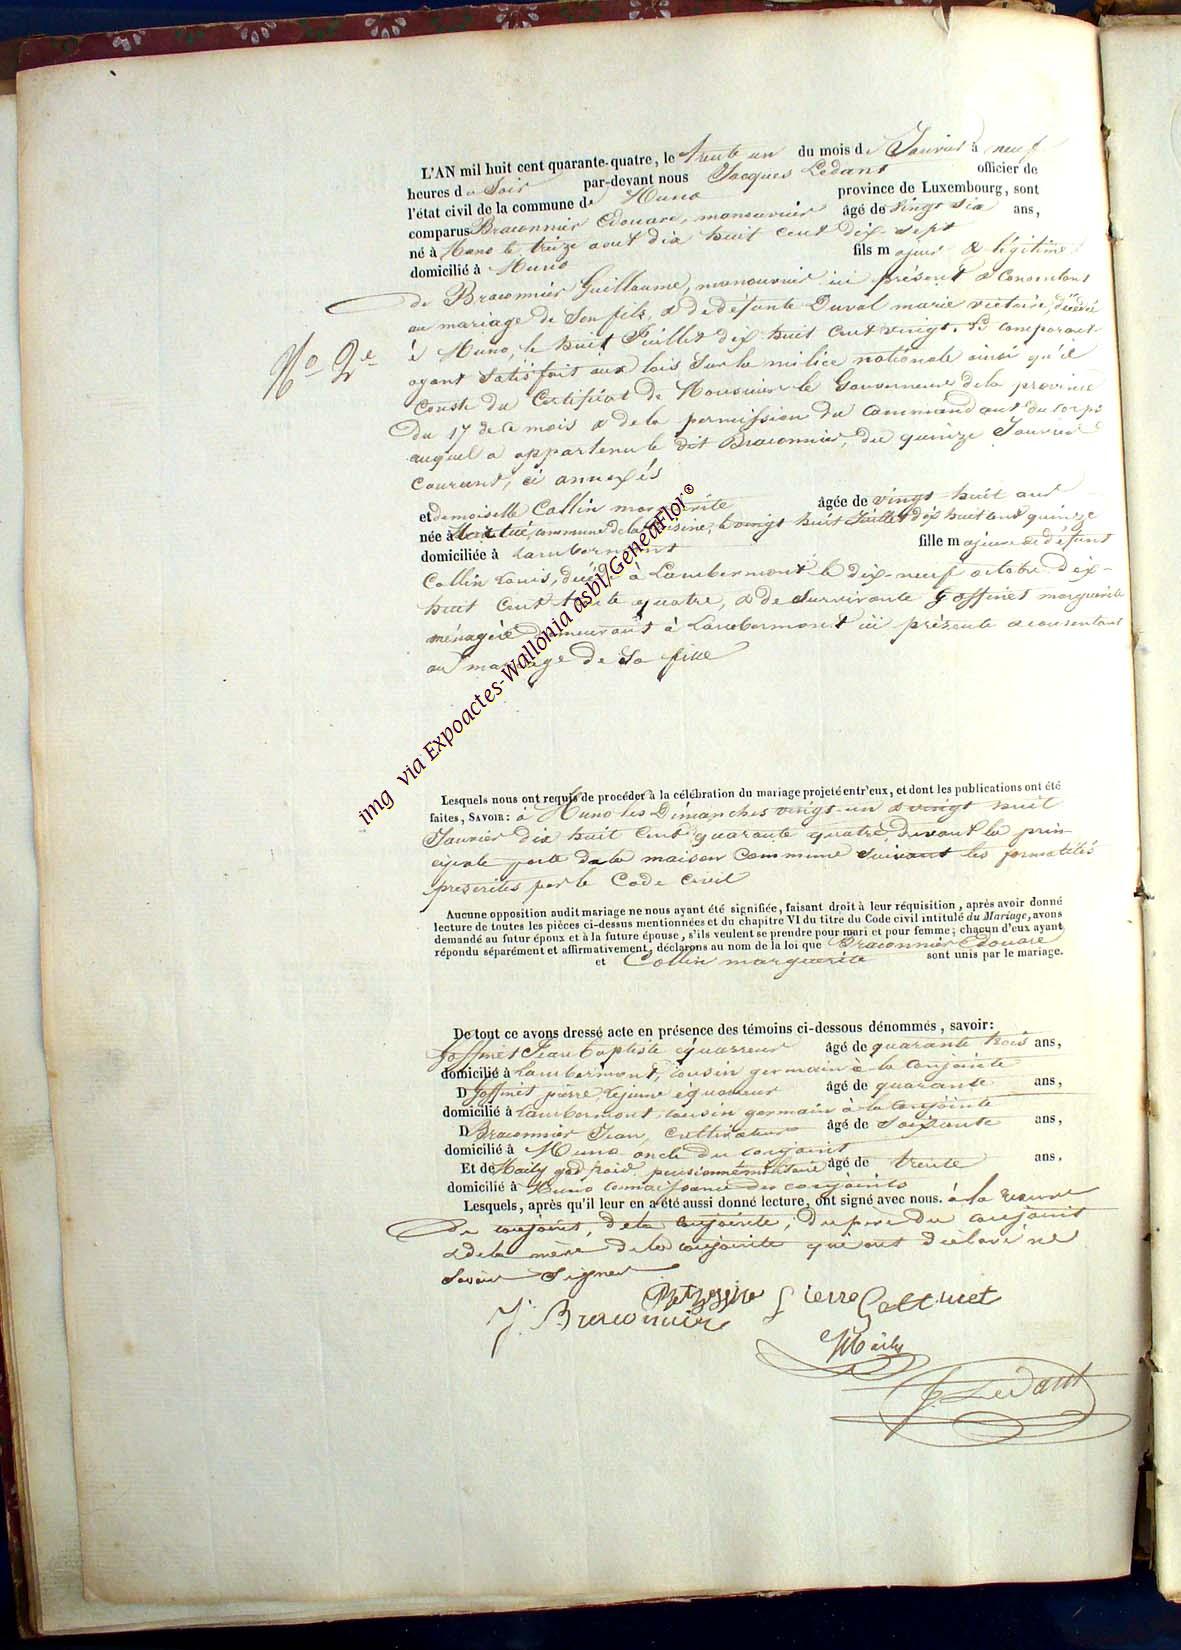 L'AN mil huit cent quarante-quatre, le trente un du mois de Janvier à neuf
heures du Soir par-devant nous Jacques Ledant officier de
l'état civil de la commune de Muno province de Luxembourg, sont
comparus Braconnier Edouare, manouvrier âgé de vingt six ans,
né à Muno le treize aout dix huit cent dix-sept
domicilié à Muno fils majeur & légitime
de Braconnier Guillaume, manouvrier ici présent & consentant
au mariage de son fils, & de defunte Duval marie victoire, décédée
à Muno, le huit Juillet dix huit cent vingt. Le comparant
No 2e
ayant satisfait aux lois sur la milice nationale ainsi qu'il
conste du Certificat de Monsieur le Gouverneur de la province
du 17 de ce mois & de la permission du Commandant du corps
auquel a appartenu le dit Braconnier, du quinze Janvier
courant, ci annexés
et demoiselle Collin marguerite âgée de vingt-huit ans
née à commune de la le vingt huit Juillet dix huit cent quinze
domiciliée à Lambermont fille majeure de défunt
Collin Louis, décédé à Lambermont le dix-neuf octobre dix-
huit cent trente quatre, & de survivante Goffinet marguerite
ménagère demeurant à Lambermont ici présente & consentant
au mariage de sa fille
img via Expoactes-Wallonia asbl/GeneaFlor®
Lesquels nous ont requis de procéder à la célébration du mariage projeté entr'eux, et dont les publications ont été
faites, SAVOIR: à Muno les Dimanches vingt-un & vingt huit
Janvier dix huit cent quarante quatre, devant la prin-
cipale porte de la maison commune suivant les formalités
prescrites par le Code civil
Aucune opposition audit mariage ne nous ayant été signifiée, faisant droit à leur réquisition, après avoir donné
lecture de toutes les pièces ci-dessus mentionnées et du chapitre VI du titre du Code civil intitulé du Mariage, avons
demandé au futur époux et à la future épouse, s'ils veulent se prendre pour mari et pour femme; chacun d'eux ayant
répondu séparément et affirmativement, déclarons au nom de la loi que Braconnier Edouare
et Collin marguerite sont unis par le mariage.
De tout ce avons dressé acte en présence des témoins ci-dessous dénommés, savoir:
Goffinet Jean baptiste équarreur âgé de quarante trois ans,
domicilié à Lambermont, cousin germain à la conjointe
D Goffinet pierre Lejeune équarreur âgé de quarante ans,
domicilié à Lambermont cousin germain à la conjointe
D Braconnier Jean, cultivateur âgé de soixante ans,
domicilié à Muno oncle du conjoint
Et de Maily god froid pensionné militaire âgé de trente ans,
domicilié à Muno connaissance des conjoints
Lesquels, après qu'il leur en a été aussi donné lecture, ont signé avec nous. à la reserve
du conjoint, de la conjointe, du père du conjoint
& de la mère de la conjointe qui ont déclaré ne
savoir signer
J. Braconnier Pierre Goffinet
Maily
J. Ledant